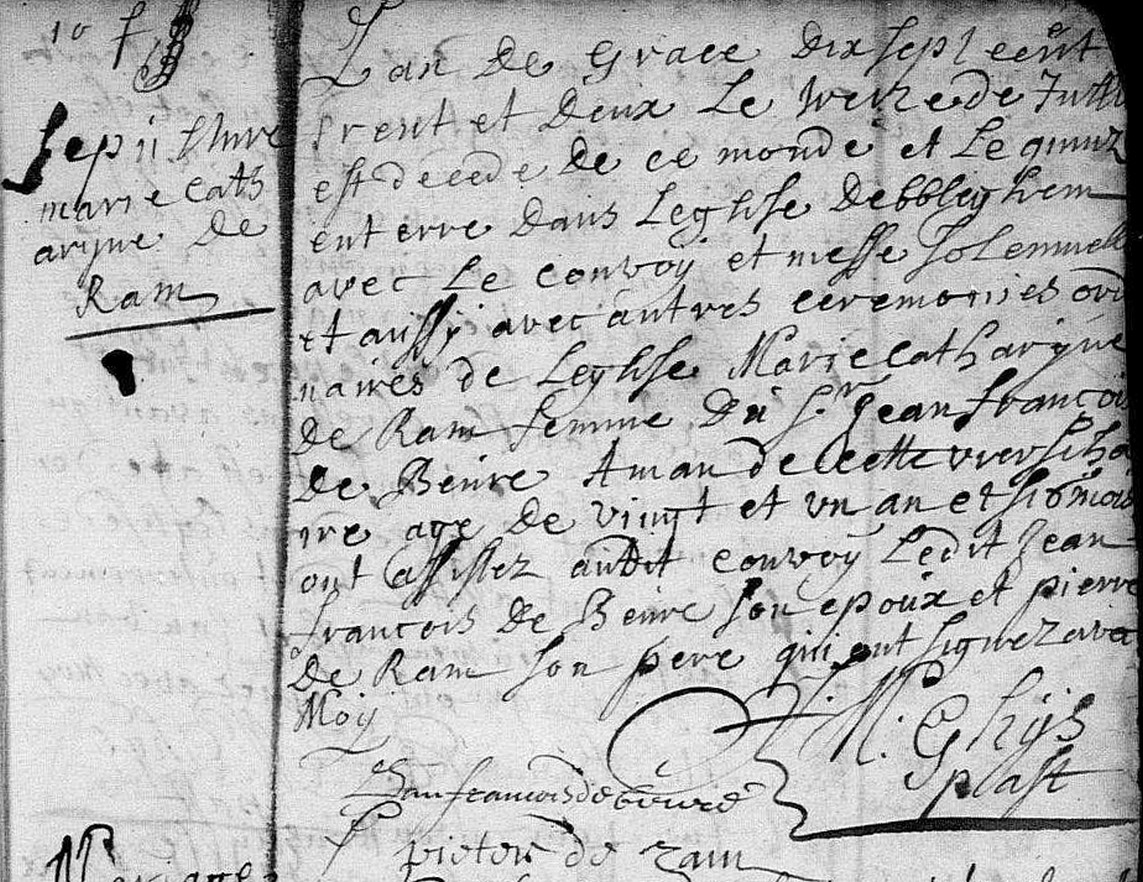 10 f
Sepulture
marie cath
arijne de
Ram
Lan de Grace dix sept cent
trent et deux Le treize de
est decede de ce monde et Le quinz
enterre dans Leglise Debblighem
avec Le convoÿ et messe solemnelle
et aussÿ avec autres ceremonies ordi
naires de Leglise Marie catharijne
de Ram femme du Sr. Jean francois
de Beure Aman de cette
age de vingt et un an et six mois
ont assistez audit convoÿ Ledit Jean
francois de Beure son epoux et pierre
de Ram son pere qui ont signez avec
Moÿ
M. Ghijs
past
Jan francois de beure
pieter de ram